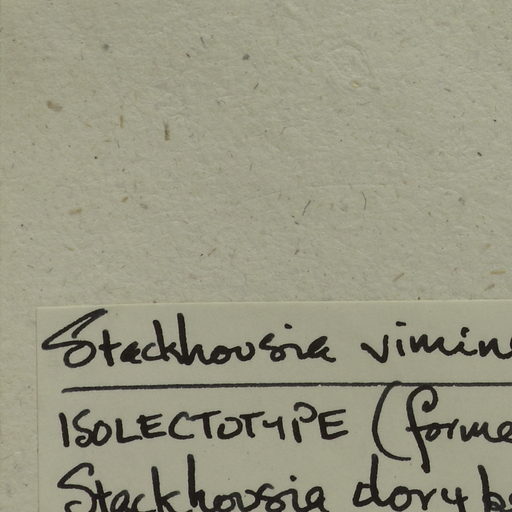 Stackhousia vimin
ISOLECTOTYPE (forme
Stackhousia dory